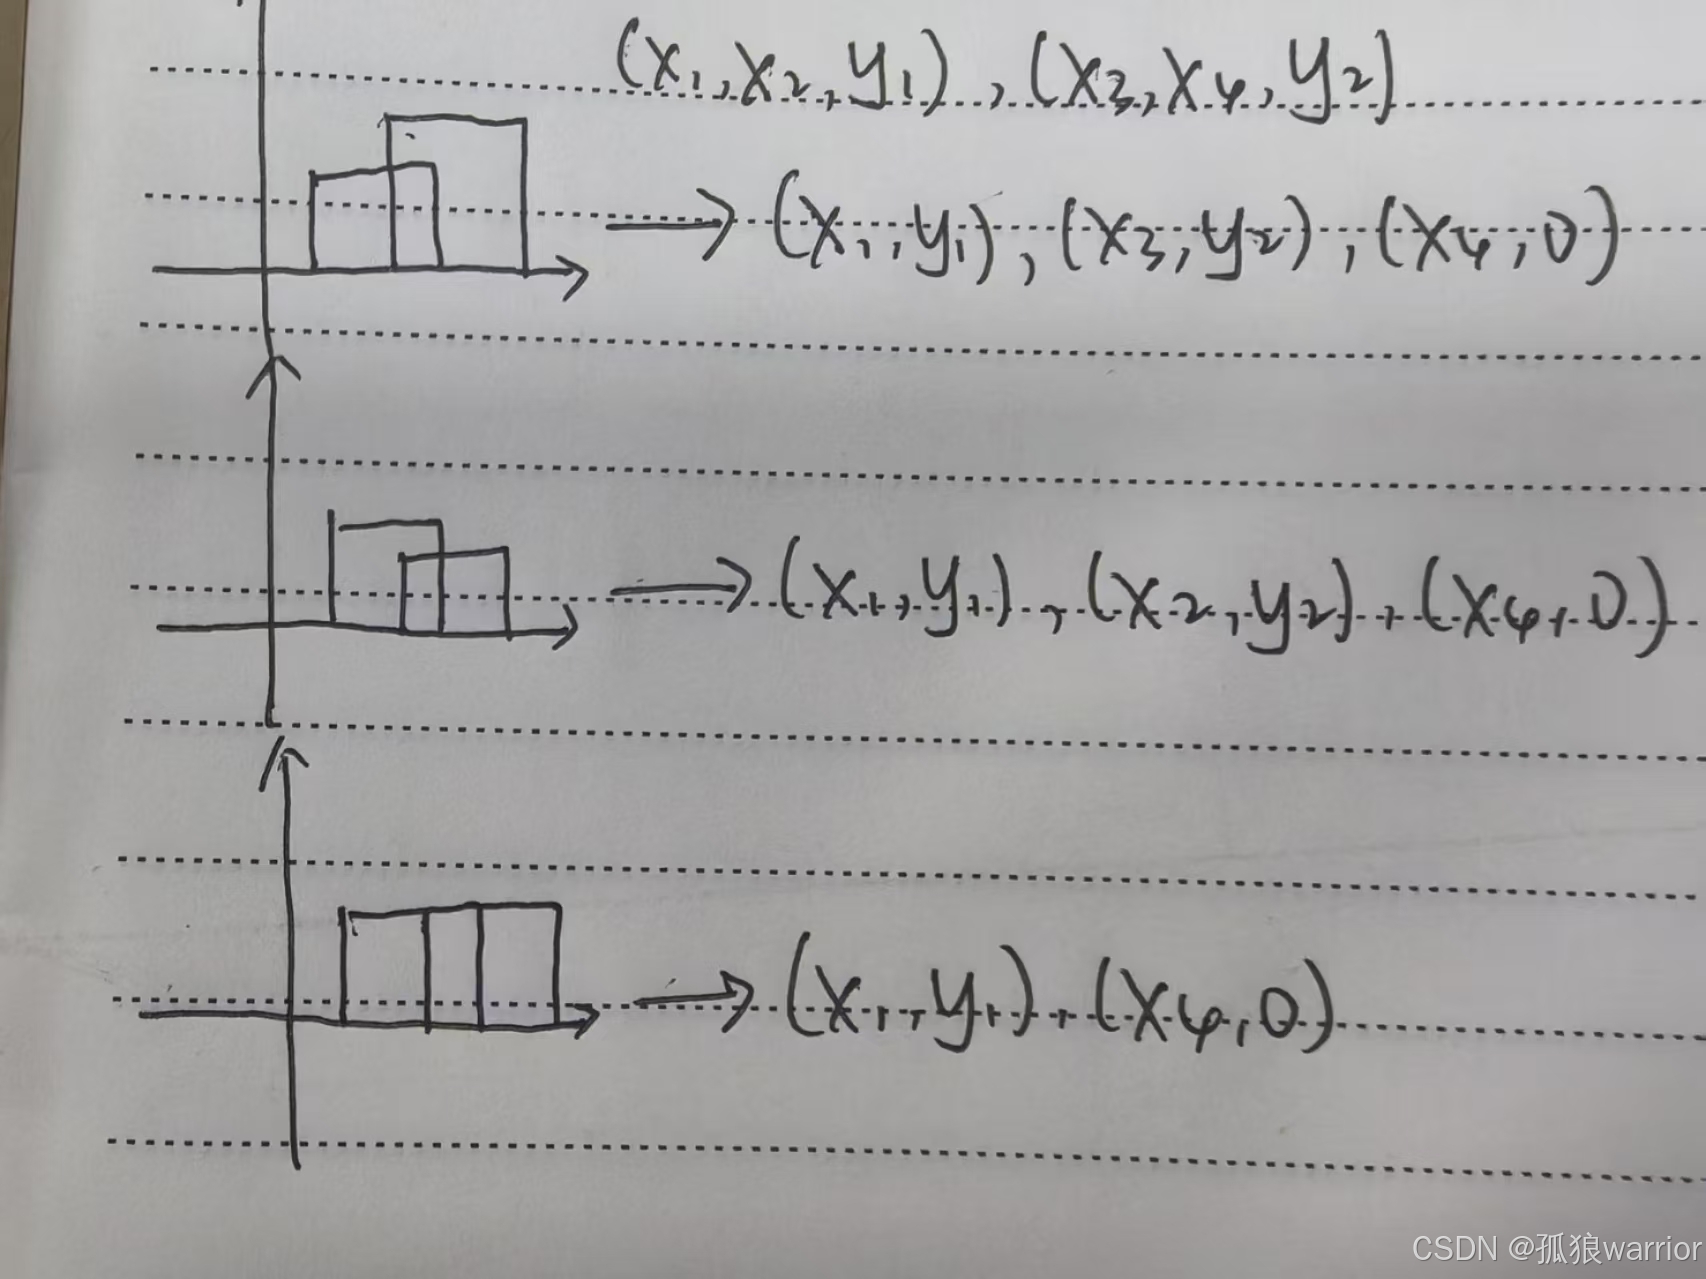 (x₁,x₂,y₁),(x₃,x₄,y₂)
(x₁,y₁),(x₃,y₂),(x₄,0)
(x₁,y₁),(x₂,y₂),(x₄,0)
(x₁,y₁),(x₄,0)
CSDN @孤狼warrior